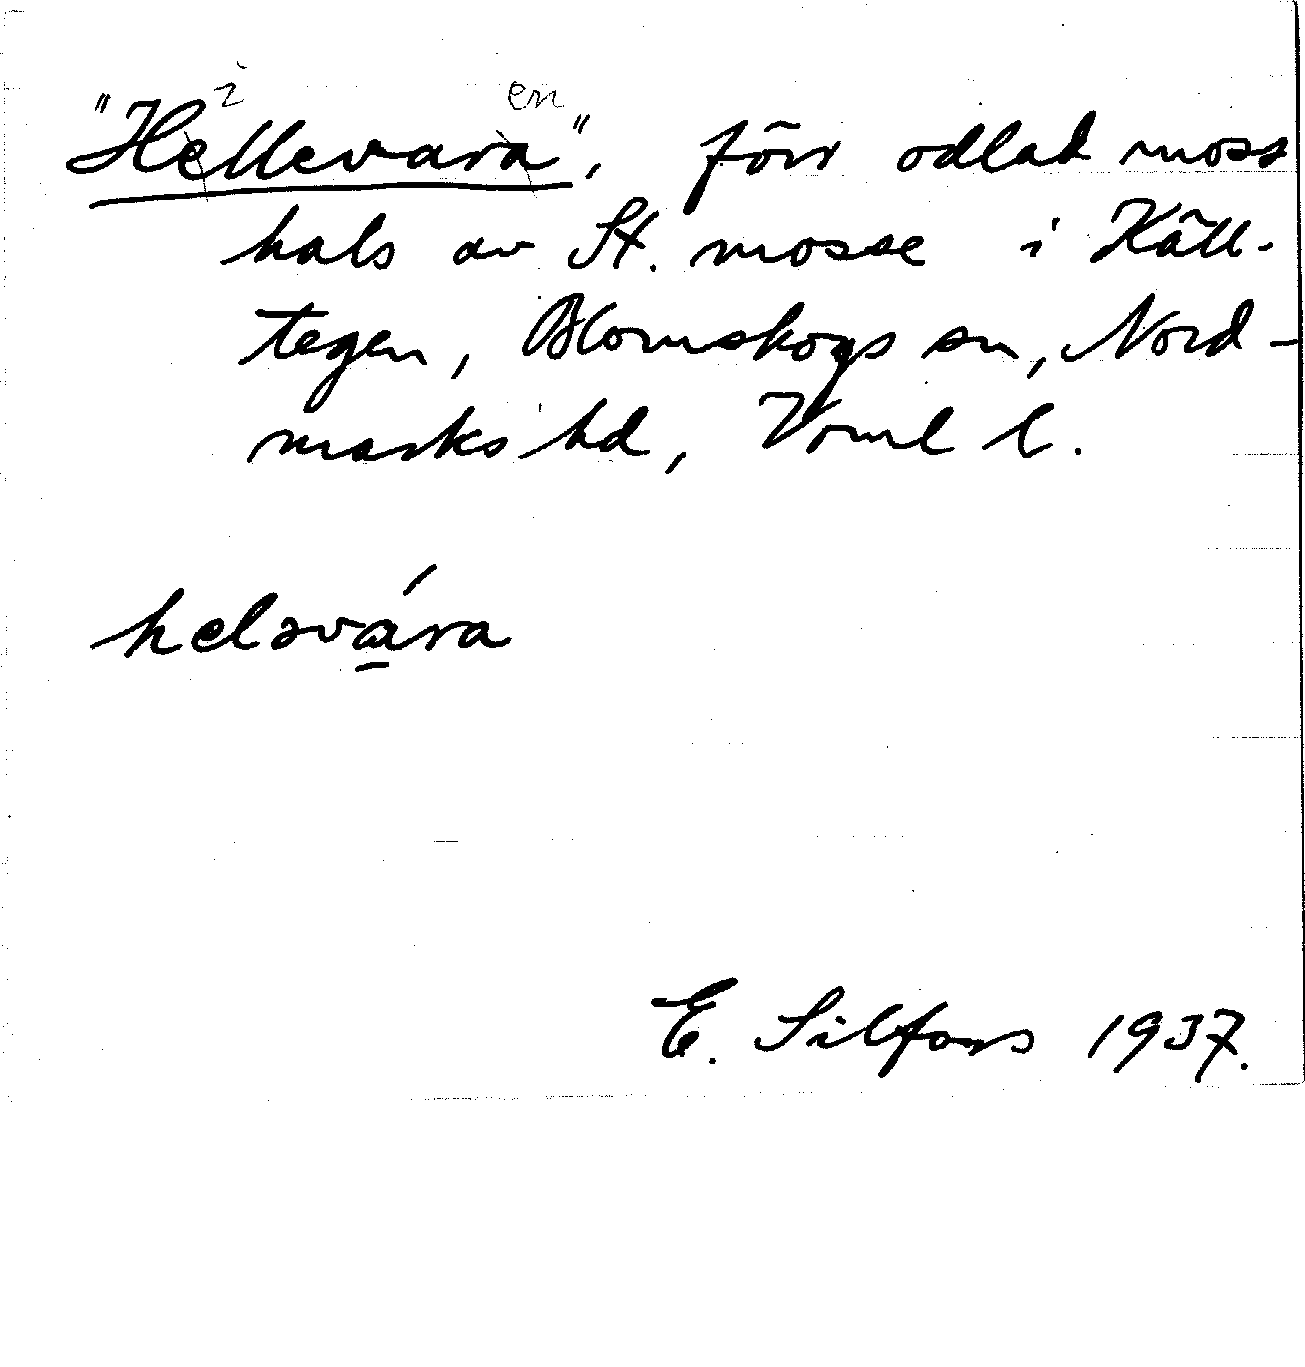 i en
"Hellevara", förr odlad moss
hals av St. mosse i Käll-
tegen, Blomskogs sn, Nord-
marks hd, Vrml l.
heləvára
E. Silfors 1937.